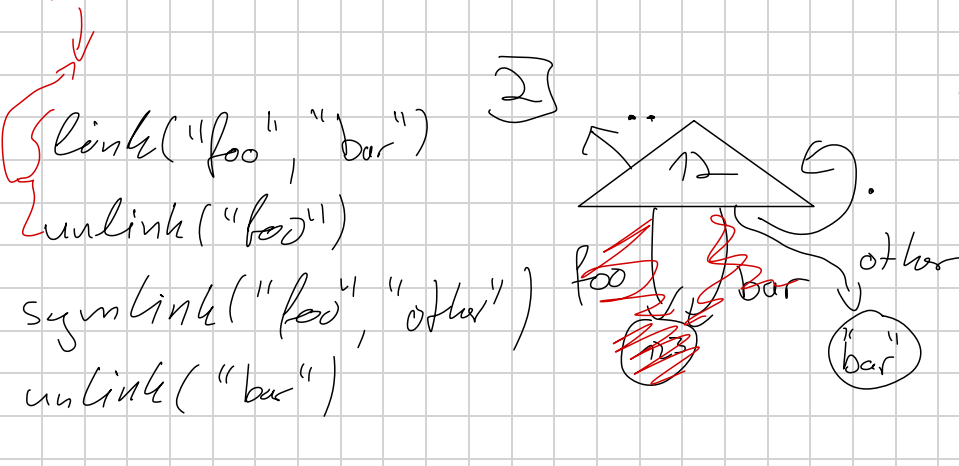 link("foo", "bar")
unlink("foo")
symlink("foo", "other")
unlink("bar")
2
..
12
.
foo
bar
other
123
"bar"